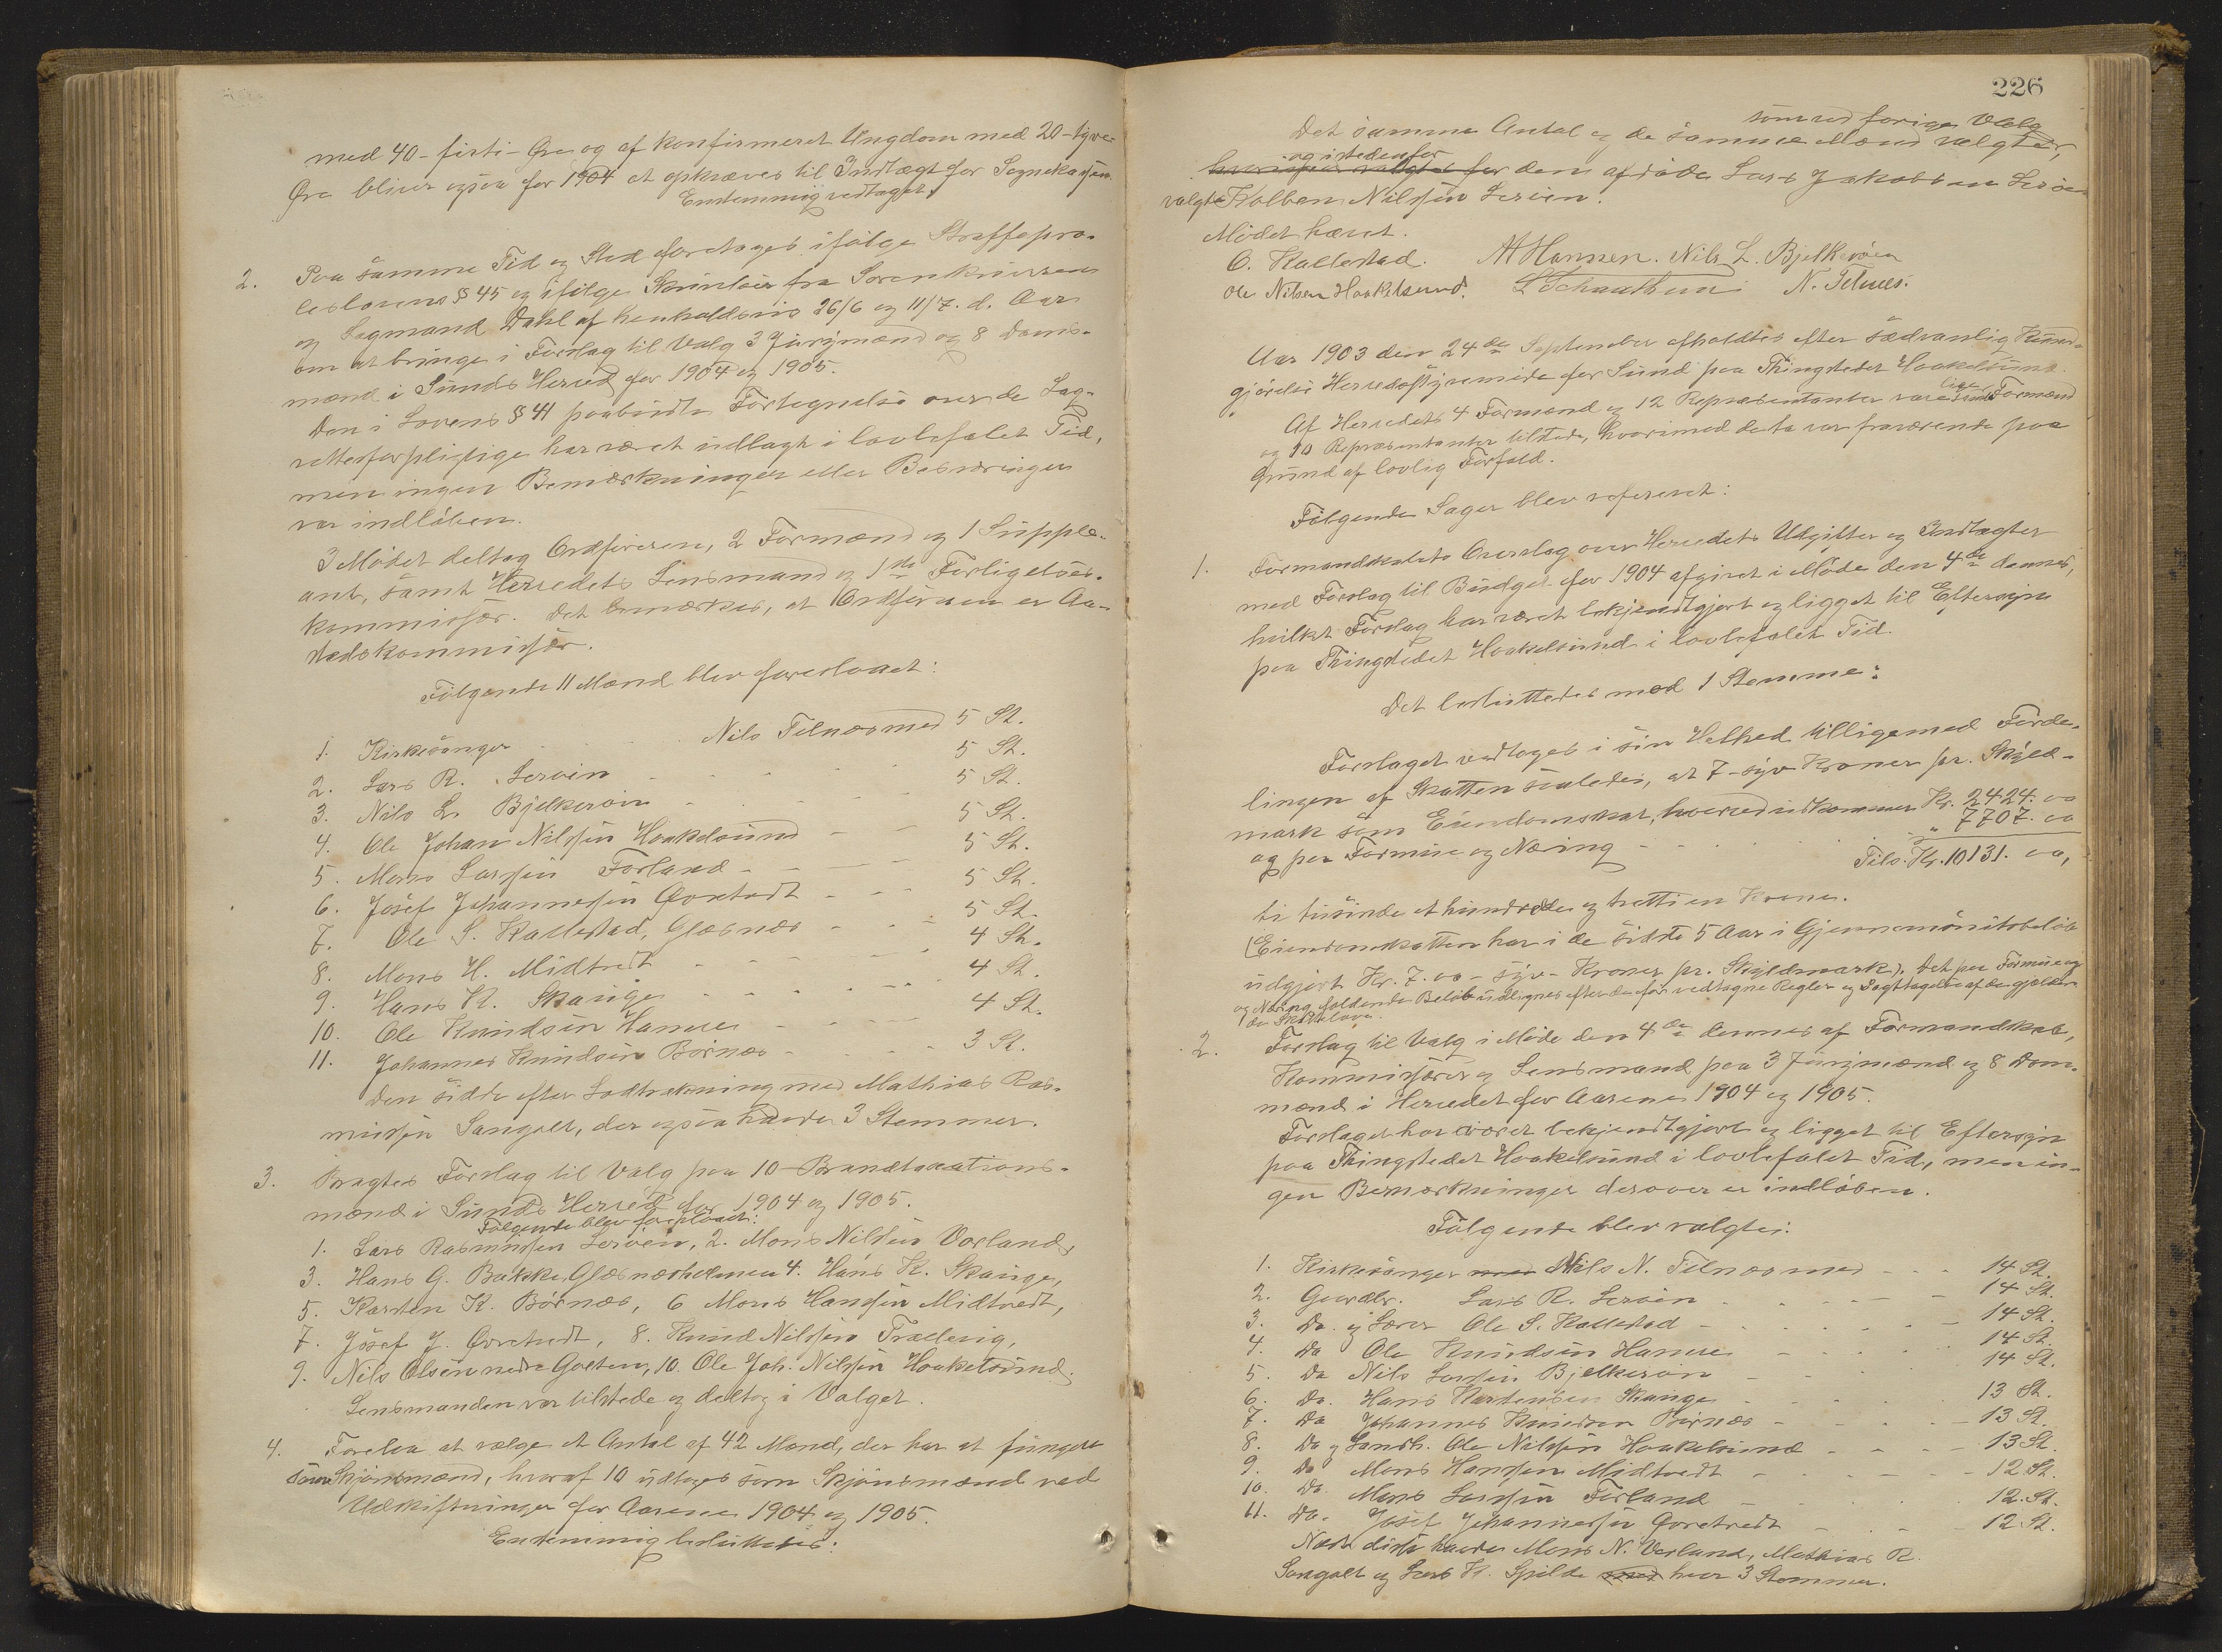 med 40 - firti - Øre og af konfirmeret Ungdom med 20 - tyve
Øre bliver ogsaa for 1904 at opkræves til Indtægt for Sognekassen.
Enstemmig vedtaget.
2. Paa samme Tid og Sted foretoges ifølge Straffepro-
ceslovens § 45 og ifølge Skrivelser fra Sorenskriveren
og Lagmand Dahl af henholdsvis 26/6 og 11/7. d. Aar
om at bringe i Forslag til Valg 3 Jurymænd og 8 Doms-
mænd i Sunds Herred for 1904 og 1905.
Den i Lovens § 41 paabudte Fortegnelse over de Lag-
rettesforpligtige har været udlagt i lovbefalet Tid,
men ingen Bemærkninger eller Besværinger
var indløben.
I Mødet deltog Ordføreren, 2 Formænd og 1 Supple-
ant, samt Herredets Lensmand og 1ste Forligelses-
kommissær. Det bemærkes, at Ordføreren er An-
dedskommissær.
Følgende 11 Mænd blev foreslaaet:
1. Kirkesanger Nils Telnæs med 5 St.
2. Lars R. Lerøin - - - 5 St.
3. Nils L. Bjelkerøin - - - 5 St.
4. Ole Johan Nilssen Haakelsund - - 5 St.
5. Mons Larssen Førland - - - 5 St.
6. Josef Johannessen Qvertvedt - - - 5 St.
7. Ole S. Kallestad, Glesnæs - - - 5 St.
8. Mons H. Midtvedt - - - 4 St.
9. Hans K. Skauge - - - 4 St.
10. Ole Knudsen Hamre - - - 4 St.
11. Johannes Knudsen Børnæs - - - 3 St.
Den sidste efter Lodtrekning med Mathias Ras-
mussen Sangolt, der ogsaa havde 3 Stemmer.
3. Bragtes Forslag til Valg paa 10 Brandtaxations-
mænd i Sunds Herred for 1904 og 1905.
Følgende blev foreslaaet:
1. Lars Rasmussen Lerøien, 2. Mons Nilssen Vorland,
3. Hans G. Bakke, Glesnæsholmen 4. Hans K. Skauge,
5. Karsten K. Børnæs, 6 Mons Hanssen Midtvedt,
7. Josef J. Qvertvedt, 8. Knud Nilssen Trællevig,
9. Nils Olsen nedre Golten, 10. Ole Joh. Nilssen Haakelsund.
Lensmanden var tilstede og deltog i Valget.
4. Forelaa at vælge et Antal af 42 Mænd, der har at fungere
som Skjønsmænd, hvoraf 10 udtoges som Skjønsmænd ved
Udskiftninger for Aarene 1904 og 1905.
Enstemmig besluttedes:
226
som ved forige Valg
Det samme Antal og de samme Mænd vælgtes,
og istedenfor
for den afdøde Lars Jakobsen Lerøen
valgtes Kolben Nilssen Lerøen.
Mødet hævet.
O. Kallestad. M Hanssen. Nils L. Bjelkerøen
Ole Nilsen Haakelsund. L Schaathun N. Telnæs.
Aar 1903 den 24de September afholdtes efter sædvanlig Kund-
gjørelse Herredsstyremøde for Sund paa Thingstedet Haakelsund.
Af Herredets 4 Formænd og 12 Repræsentanter var Formænd
og 10 Repræsentanter tilstede, hvorimod de to var fraværende paa
Grund af lovlig Forfald.
Følgende Sager blev refereret:
1. Formandskabets Overslag over Herredets Udgifter og Indtægter
med Forslag til Budget for 1904 afgivet i Møde den 4de dennes,
hvilket Forslag har været bekjendtgjort og ligget til Eftersyn
paa Thingstedet Haakelsund i lovbefalet Tid.
Det besluttedes mod 1 Stemme:
Forslaget vedtoges i sin Helhed tilligemed Forde-
lingen af Skatten saaledes, at 7 - syv Kroner pr. Skyld-
mark som Eiendomsskat, hvorved udkommer Kr. 2424. 00
og paa Formue og Næring - - - " 7707. 00
Tils. Kr. 10131. 00,
ti tusinde et hundrede og tretti en Krone.
(Eiendomsskatten har i de sidste 5 Aar i Gjennemsnitsbeløb
udgjort Kr. 7.00 - syv - Kroner pr. Skyldmark). Det paa Formue og
og Næring faldende Beløb udlignes efter de før vedtagne Regler og Iagttagelse af de gjælden-
de Skattelove.
2. Forslag til Valg i Møde den 4de dennes af Formandskab,
Kommissærer og Lensmand paa 3 Jurymænd og 8 Dom-
mænd i Herredet for Aarene 1904 og 1905.
Forslaget har været bekjendtgjort og ligget til Eftersyn
paa Thingstedet Haakelsund i lovbefalet Tid, men in-
gen Bemærkninger derover er indløben.
Følgende blev valgte:
1. Kirkesanger med Nils N. Telnæs med - - - 14 St.
2. Gaardbr. Lars R. Lerøin - - - 14 St.
3. Do. og Lærer Ole S. Kallestad - - - 14 St.
4. Do Ole Knudsen Hamre - - - 14 St.
5. Do Nils Larssen Bjelkerøin - - - 14 St.
6. Do. Hans Karstensen Skauge - - - 13 St.
7. Do Johannes Knudsen Børnæs - - - 13 St.
8. Do og Landh. Ole Nilssen Haakelsund - - - 13 St.
9. Do Mons Hanssen Midtvedt - - - 12 St.
10. Do. Mons Larssen Førland - - - 12. St.
11. Do. Josef Johannessen Qvertvedt - - - 12 St.
Næst disse havde Mons N. Vorland, Mathias R.
Sangolt og Lars K. Spilde med hver 3 Stemmer.